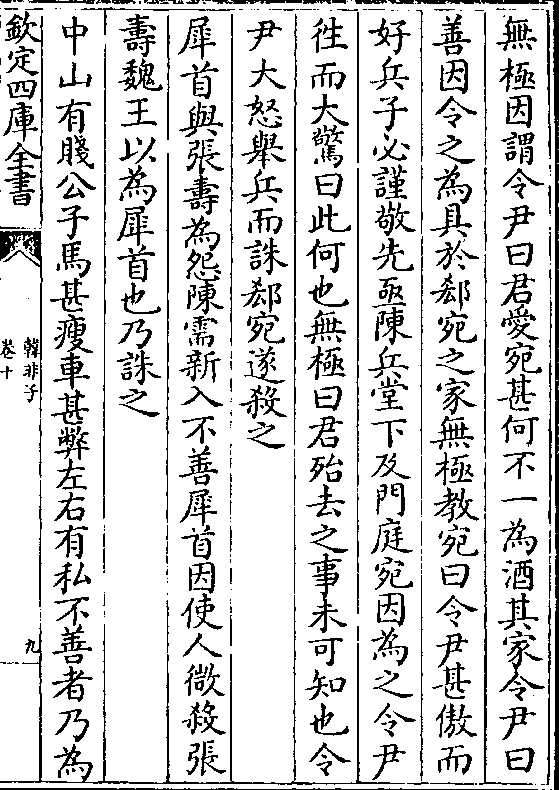 無極因謂令尹曰君愛宛甚何不一為酒其家令尹曰
善因令之為具於郄宛之家無極教宛曰令尹甚傲而
好兵子必謹敬先亟陳兵堂下及門庭宛因為之令尹
徃而大驚曰此何也無極曰君殆去之事未可知也令
尹大怒舉兵而誅郄宛遂殺之
犀首與張壽為怨陳需新入不善犀首因使人微殺張
壽魏王以為犀首也乃誅之
中山有賤公子馬甚瘦車甚弊左右有私不善者乃為
欽定四庫全書
韓非子
卷十
九